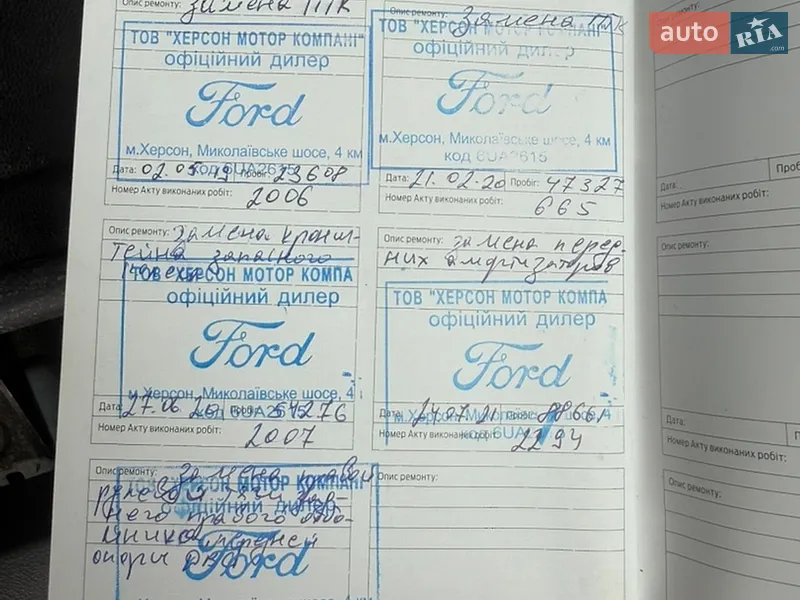 Опис ремонту: замена ГТК
ТОВ "ХЕРСОН МОТОР КОМПАНІ"
офіційний дилер
Ford
м.Херсон, Миколаївське шосе, 4 км
код 6UA2615
Дата: 02.05.19 Пробіг: 23608
Номер Акту виконаних робіт:
2006
Опис ремонту: замена ГТК
офіційний дилер
Ford
м.Херсон, Миколаївське шосе, 4 км
код 6UA2615
Дата: 21.02.20 Пробіг: 47327
Номер Акту виконаних робіт:
665
Опис ремонту: замена кронш-
тейна запасного
ТОВ "ХЕРСОН МОТОР КОМПА
офіційний дилер
Ford
м.Херсон, Миколаївське шосе, 4
Дата: 27.06.20 54276
Номер Акту виконаних робіт:
2007
Опис ремонту: замена перед-
них амортизаторов
ТОВ "ХЕРСОН МОТОР КОМПА
офіційний дилер
Ford
Дата: 21
Номер Акту виконаних робіт:
2294
Опис ремонту: замена
рулевой
него правого
передней
опоры
ТОВ "ХЕРСОН МОТОР КОМПАНІ
офіційний дилер
Ford
Опис ремонту:
Дата:
Номер Акту виконаних робіт:
Опис ремонту:
Дата:
Номер Акту виконаних робіт:
Опис ремонту:
auto RIA.com